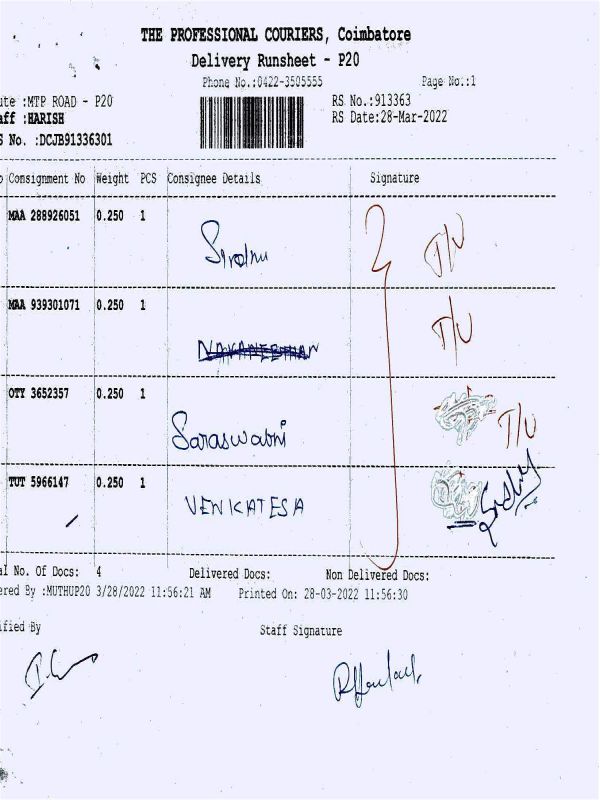 THE PROFESSIONAL COURIERS, Coimbatore
Delivery Runsheet - P20
Phone No.:0422-3505555 Page No.:1
ute :MTP ROAD - P20 RS No.:913363
aff :HARISH RS Date:28-Mar-2022
S No. :DCJB91336301
o Consignment No Weight PCS Consignee Details Signature
MAA 288926051 0.250 1
T/U
MAA 939301071 0.250 1
T/U
OTY 3652357 0.250 1
Saraswathi T/U
TUT 5966147 0.250 1
VENKATESA
al No. Of Docs: 4 Delivered Docs: Non Delivered Docs:
ered By :MUTHUP20 3/28/2022 11:56:21 AM Printed On: 28-03-2022 11:56:30
ified By Staff Signature